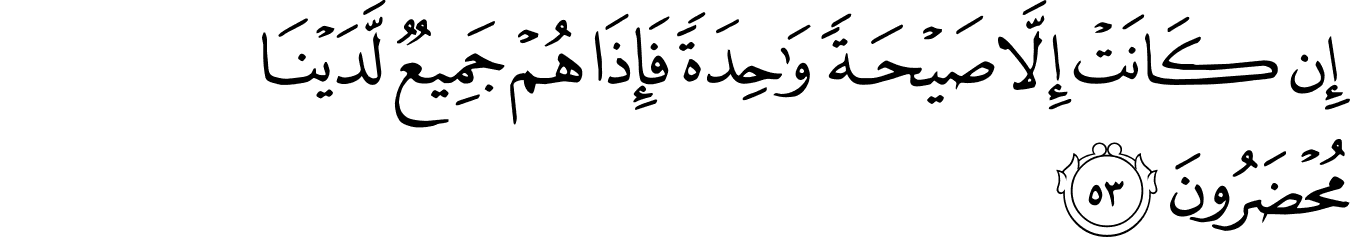 إِن كَانَتْ إِلَّا صَيْحَةً وَٰحِدَةً فَإِذَا هُمْ جَمِيعٌ لَّدَيْنَا
مُحْضَرُونَ ٥٣